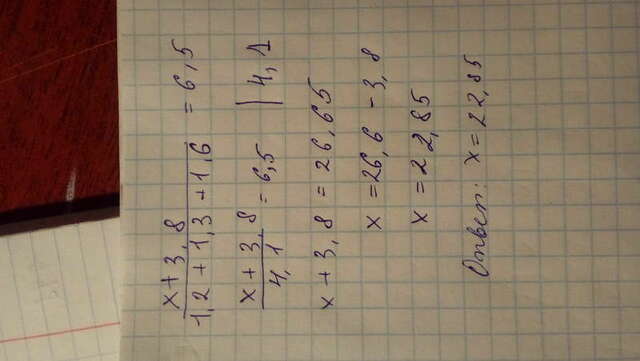 x + 3,8
1,2 + 1,3 + 1,6 = 6,5
x + 3,8
4,1 = 6,5 | 4,1
x + 3,8 = 26,65
x = 26,6 - 3,8
x = 22,85
Ответ: x = 22,85